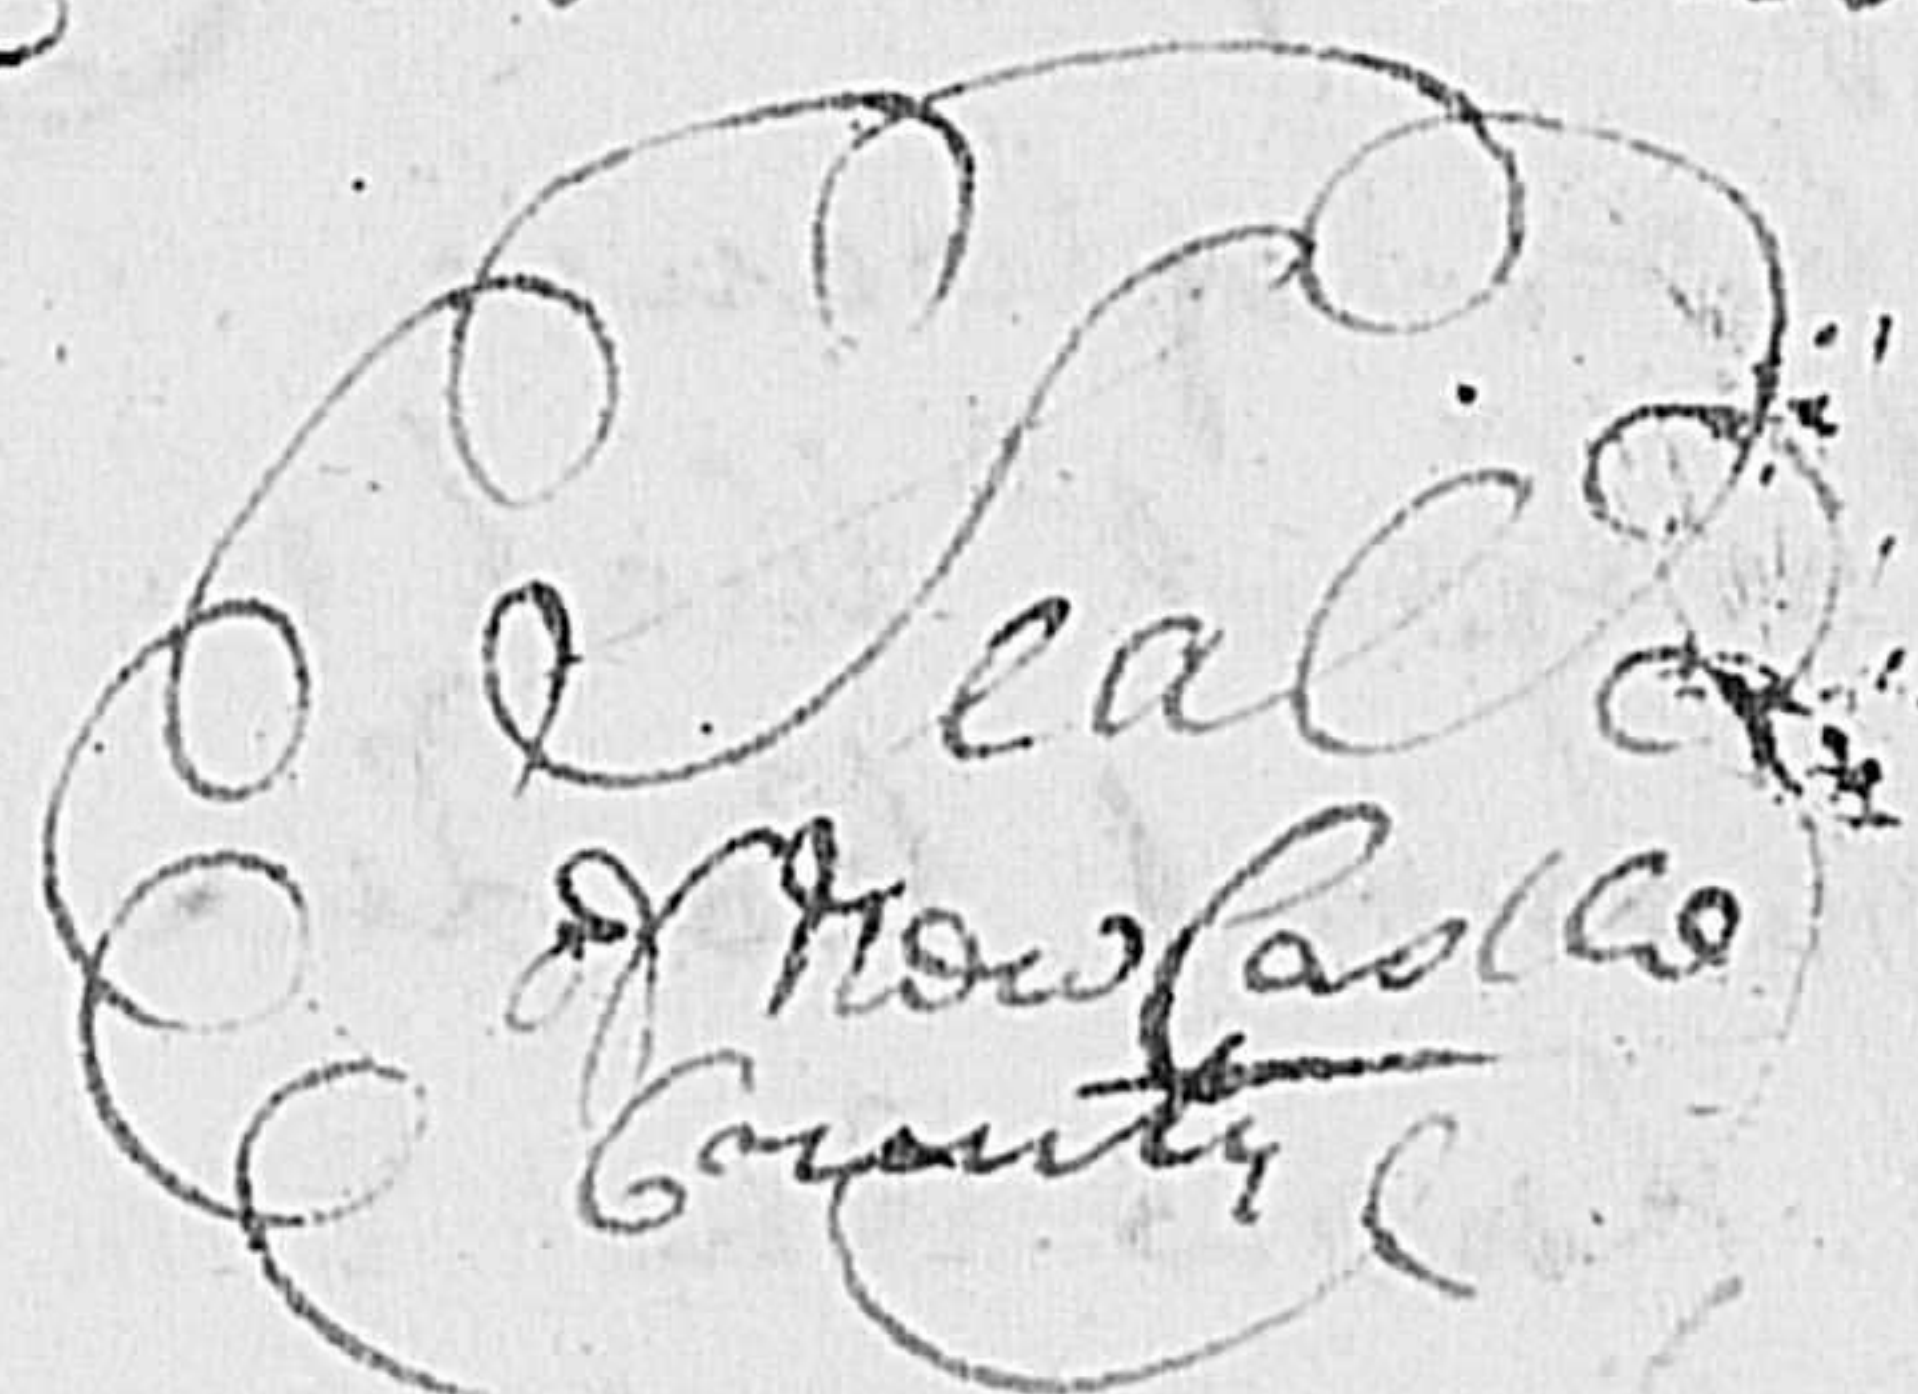 Seal
of New Castle
County